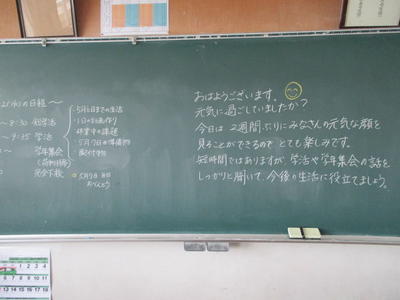 の日程〜
〜8:30 短学活
〜9:25 学活
学年集会
完全下校
・5月6日までの生活
・1日の計画作り
・休業中の課題
・5月7日の準備物
・配付物
おはようございます。
元気に過ごしていましたか?
今日は2週間ぶりにみなさんの元気な顔を
見ることができるのでとても楽しみです。
短時間ではありますが、学活や学年集会の話を
しっかりと聞いて、今後の生活に役立てましょう。